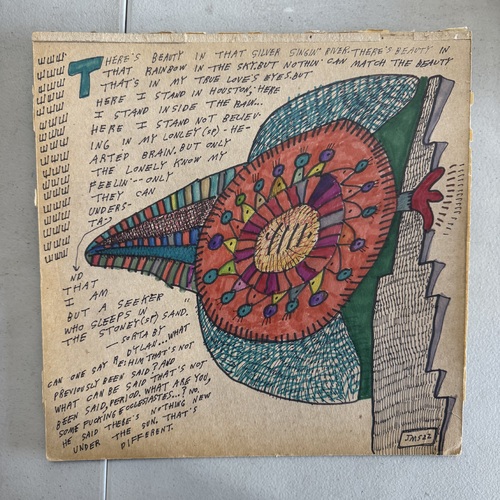 THERE'S BEAUTY IN THAT SILVER SINGIN' RIVER. THERE'S BEAUTY IN
THAT RAINBOW IN THE SKY. BUT NOTHIN' CAN MATCH THE BEAUTY
THAT'S IN MY TRUE LOVE'S EYES. BUT
HERE I STAND IN HOUSTON, HERE
I STAND INSIDE THE RAIN...
HERE I STAND NOT BELIEV-
ING IN MY LONLEY (SP) -HE-
ARTED BRAIN. BUT ONLY
THE LONELY KNOW MY
FEELIN'-- ONLY
THEY CAN
UNDERS-
TA-
ND
THAT
I AM
BUT A SEEKER
WHO SLEEPS IN
THE STONEY (SP) SAND."
—SORTA BY
DYLAN... WHAT
CAN ONE SAY RE: HIM THAT'S NOT
PREVIOUSLY BEEN SAID? AND
WHAT CAN BE SAID THAT'S NOT
BEEN SAID, PERIOD. WHAT ARE YOU,
SOME FUCKING ECCLESIASTES...? NO.
HE SAID THERE'S NOTHING NEW
UNDER THE SUN. THAT'S
DIFFERENT.